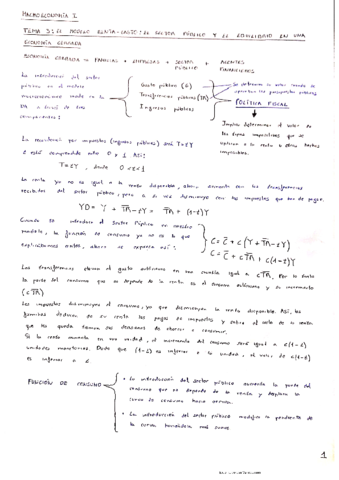 MACROECONOMÍA I
TEMA 3: EL MODELO RENTA-GASTO: EL SECTOR PÚBLICO Y EL EQUILIBRIO EN UNA
ECONOMÍA CERRADA
ECONOMÍA CERRADA → FAMILIAS + EMPRESAS + SECTOR PÚBLICO + AGENTES FINANCIEROS
La introducción del sector
público en el modelo
macroeconómico
DA a través de tres
componentes:
Gasto público (G)
Transferencias públicas (TR)
Ingresos públicos
Se determina el valor cuando se
los presupuestos públicos
POLÍTICA FISCAL
Implica determinar el valor de
los tipos impositivos que se
aplican a la renta u otros hechos
imponibles.
La recaudación por impuestos (ingresos públicos) será T=tY
t está comprendido entre 0 y 1. Así:
T=tY, donde 0<t<1
La renta ya no es igual a la renta disponible, ahora aumenta con las transferencias
recibidas del sector público, pero a su vez disminuye con los impuestos que han de pagar.
YD = Y + TR - tY = TR + (1-t)Y
Cuando se introduce el Sector Público en nuestro
modelo, la función de consumo ya no es la que
explicábamos antes, ahora se expresa así:
C = C + c(Y + TR - tY)
C = C + cTR + c(1-t)Y
Las transferencias elevan el gasto autónomo en una cuantía igual a cTR. Por lo tanto
la parte del consumo que no depende de la renta es el consumo autónomo y su incremento
(cTR)
Los impuestos disminuyen el consumo, ya que disminuyen la renta disponible. Así, las
familias deducen de su renta los pagos de impuestos y sobre el resto de la renta
que les queda toman sus decisiones de ahorrar o consumir.
Si la renta aumenta en una unidad, el incremento del consumo será igual a c(1-t)
unidades monetarias. Dado que (1-t) es inferior a la unidad, el valor de c(1-t)
es inferior a c
FUNCIÓN DE CONSUMO
• La introducción del sector público aumenta la parte del
consumo que no depende de la renta y desplaza la
curva de consumo hacia arriba.
• La introducción del sector público modifica la pendiente de
la curva haciéndola más suave
1